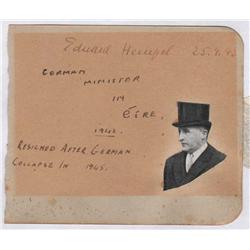 Eduard Hempel 25.4.42
GERMAN
MINISTOR
IN
ÉIRE.
1942.
RESIGNED AFTER GERMAN
COLLAPSE IN 1945.